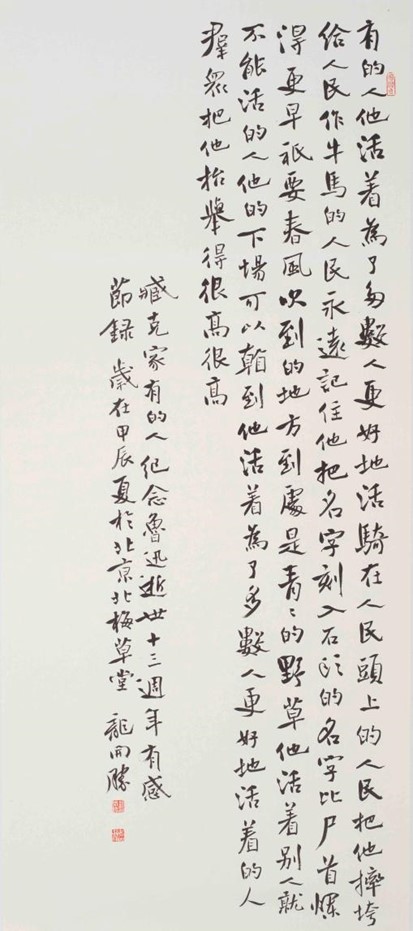 有的人他活着為了多數人更好地活騎在人民頭上的人民把他摔垮
給人民作牛馬的人民永遠記住他把名字刻入石頭的名字比尸首爛
得更早衹要春風吹到的地方到處是青〻的野草他活着別人就
不能活的人他的下場可以看到他活着為了多數人更好地活着的人
羣衆把他抬舉得很高很高
臧克家有的人紀念魯迅逝世十三週年有感
節録 歲在甲辰夏於北京北梅草堂 龍開勝